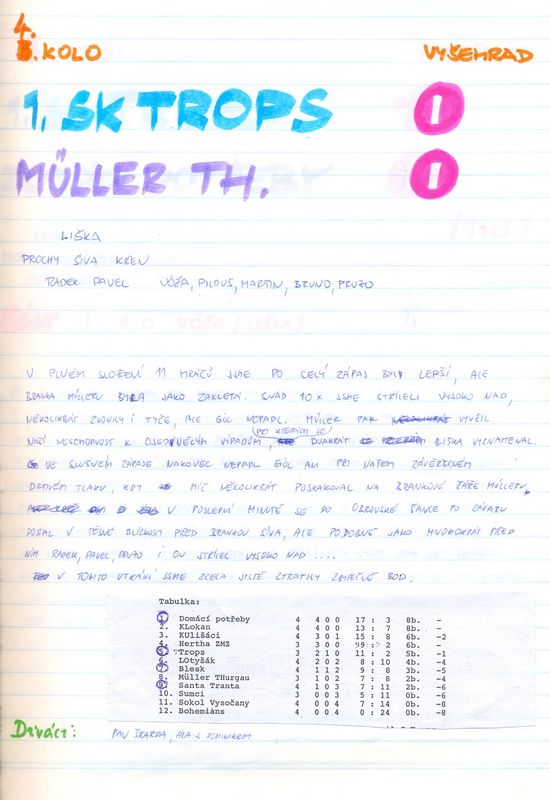 4.
3. KOLO VYŠEHRAD
1. SK TROPS 0
MÜLLER TH. 0
LIŠKA
PROCHY SIVA KŘEN
RADEK PAVEL VÓŽA, PILOUS, MARTIN, BRUNO, PRUŽO
V PLNÉM SLOŽENÍ 11 HRÁČŮ JSME PO CELÝ ZÁPAS BYLI LEPŠÍ, ALE
BRANKA MÜLLERU BYLA JAKO ZAKLETÁ. SNAD 10x JSME STŘÍLELI VYSOKO NAD,
NĚKOLIKRÁT ZVONILY I TYČE, ALE GÓL NEPADL. MÜLLER PAK VYUŽIL
NAŠÍ NESCHOPNOST K OJEDINĚLÝM VÝPADŮM, PŘI KTERÝCH SE DVAKRÁT LIŠKA VYZNAMENAL.
VE SLUŠNÉM ZÁPASE NAKONEC NEPADL GÓL ANI PŘI NAŠEM ZÁVĚREČNÉM
DRTIVÉM TLAKU, KDY MÍČ NĚKOLIKRÁT POSKAKOVAL NA BRANKOVÉ ČÁŘE MÜLLERU,
V POSLEDNÍ MINUTĚ SE DO OBROVSKÉ ŠANCE PO ZÁVARU
DOSTAL V TĚSNÉ BLÍZKOSTI PŘED BRANKOU SIVA, ALE PODOBNĚ JAKO MNOHOKRÁT PŘED
NÍM RADEK, PAVEL, PRUŽO I ON STŘÍLEL VYSOKO NAD ....
V TOMTO UTKÁNÍ JSME ZCELA JISTĚ ZTRATILY ZBYTEČNĚ BOD.
Tabulka:
1. Domácí potřeby 4 4 0 0 17 : 3 8b. -
2. KLokan 4 4 0 0 13 : 7 8b. -
3. KUlišáci 4 3 0 1 15 : 8 6b. -2
4. Hertha ZMZ 3 3 0 0 99 : 2 6b. -
5. Trops 3 2 1 0 11 : 2 5b. -1
6. LOtyšák 4 2 0 2 8 : 10 4b. -4
7. Blesk 4 1 1 2 9 : 8 3b. -5
8. Müller THurgau 3 1 0 2 7 : 8 2b. -4
9. Santa Tranta 4 1 0 3 7 : 11 2b. -6
10. Sumci 3 0 0 3 5 : 11 0b. -6
11. Sokol Vysočany 4 0 0 4 7 : 14 0b. -8
12. Bohemiáns 4 0 0 4 0 : 24 0b. -8
Diváci: PAN ŠKARDA, ALA S DOMINIKEM